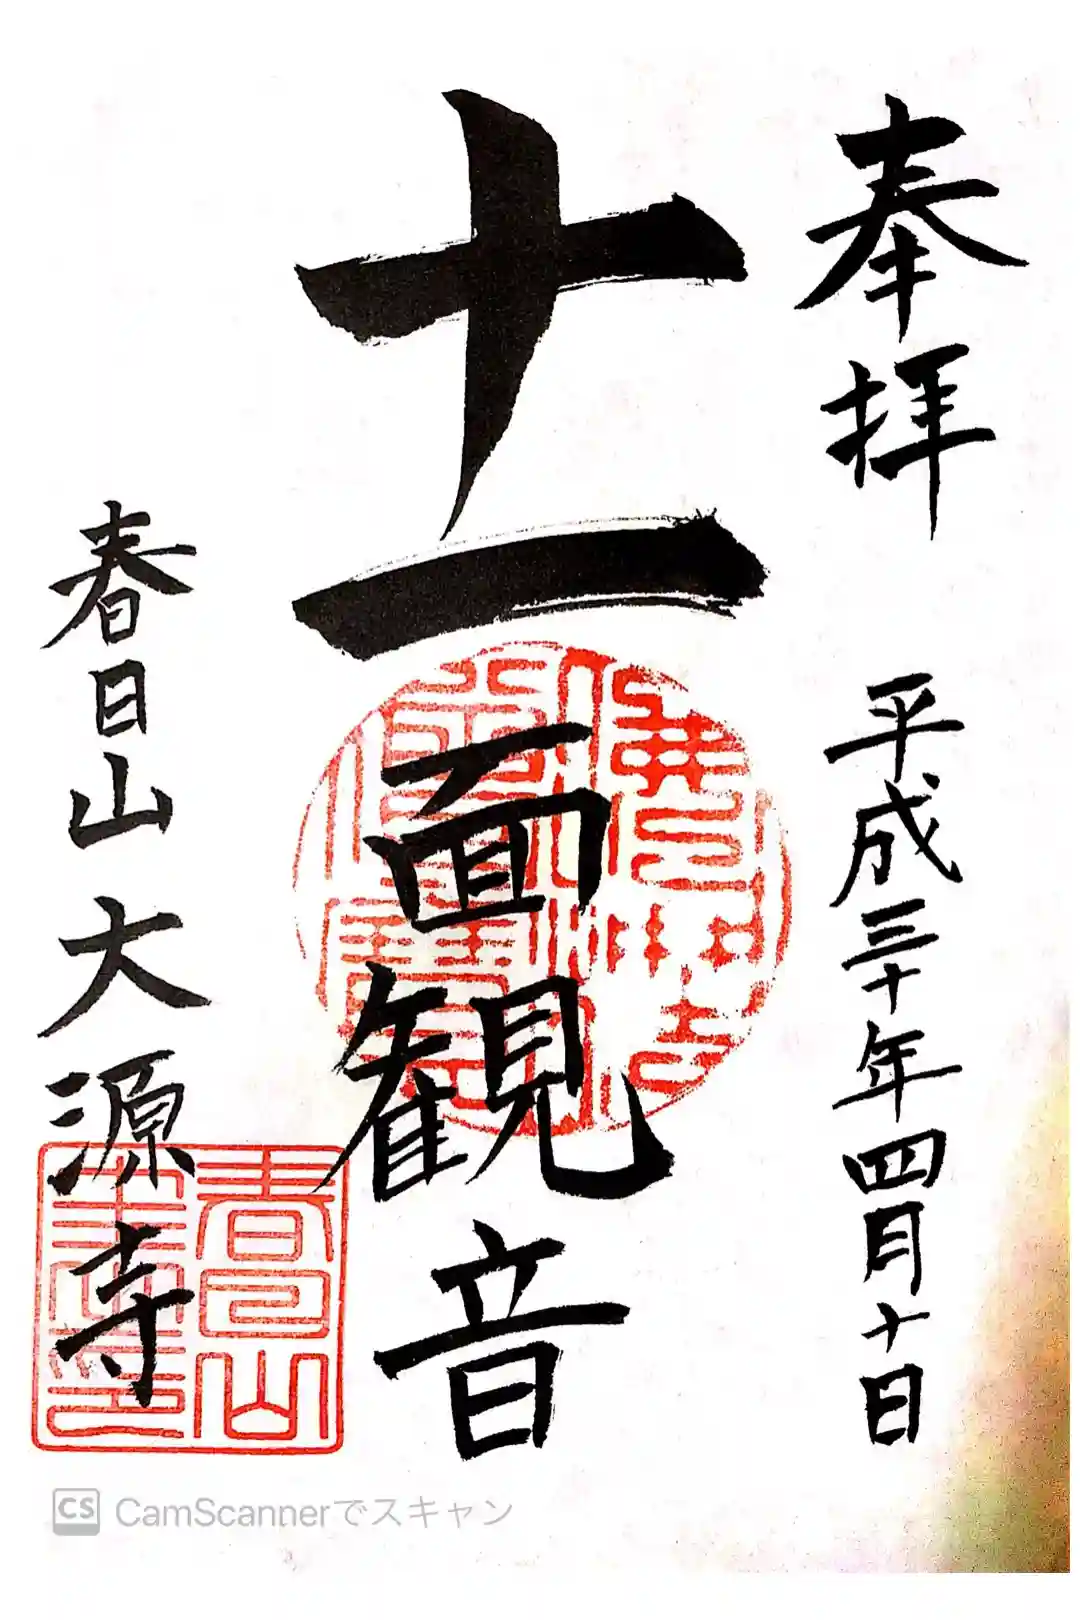 奉拝 平成三十年四月十日
十一面観音
春日山 大源寺
春日山
CS CamScannerでスキャン